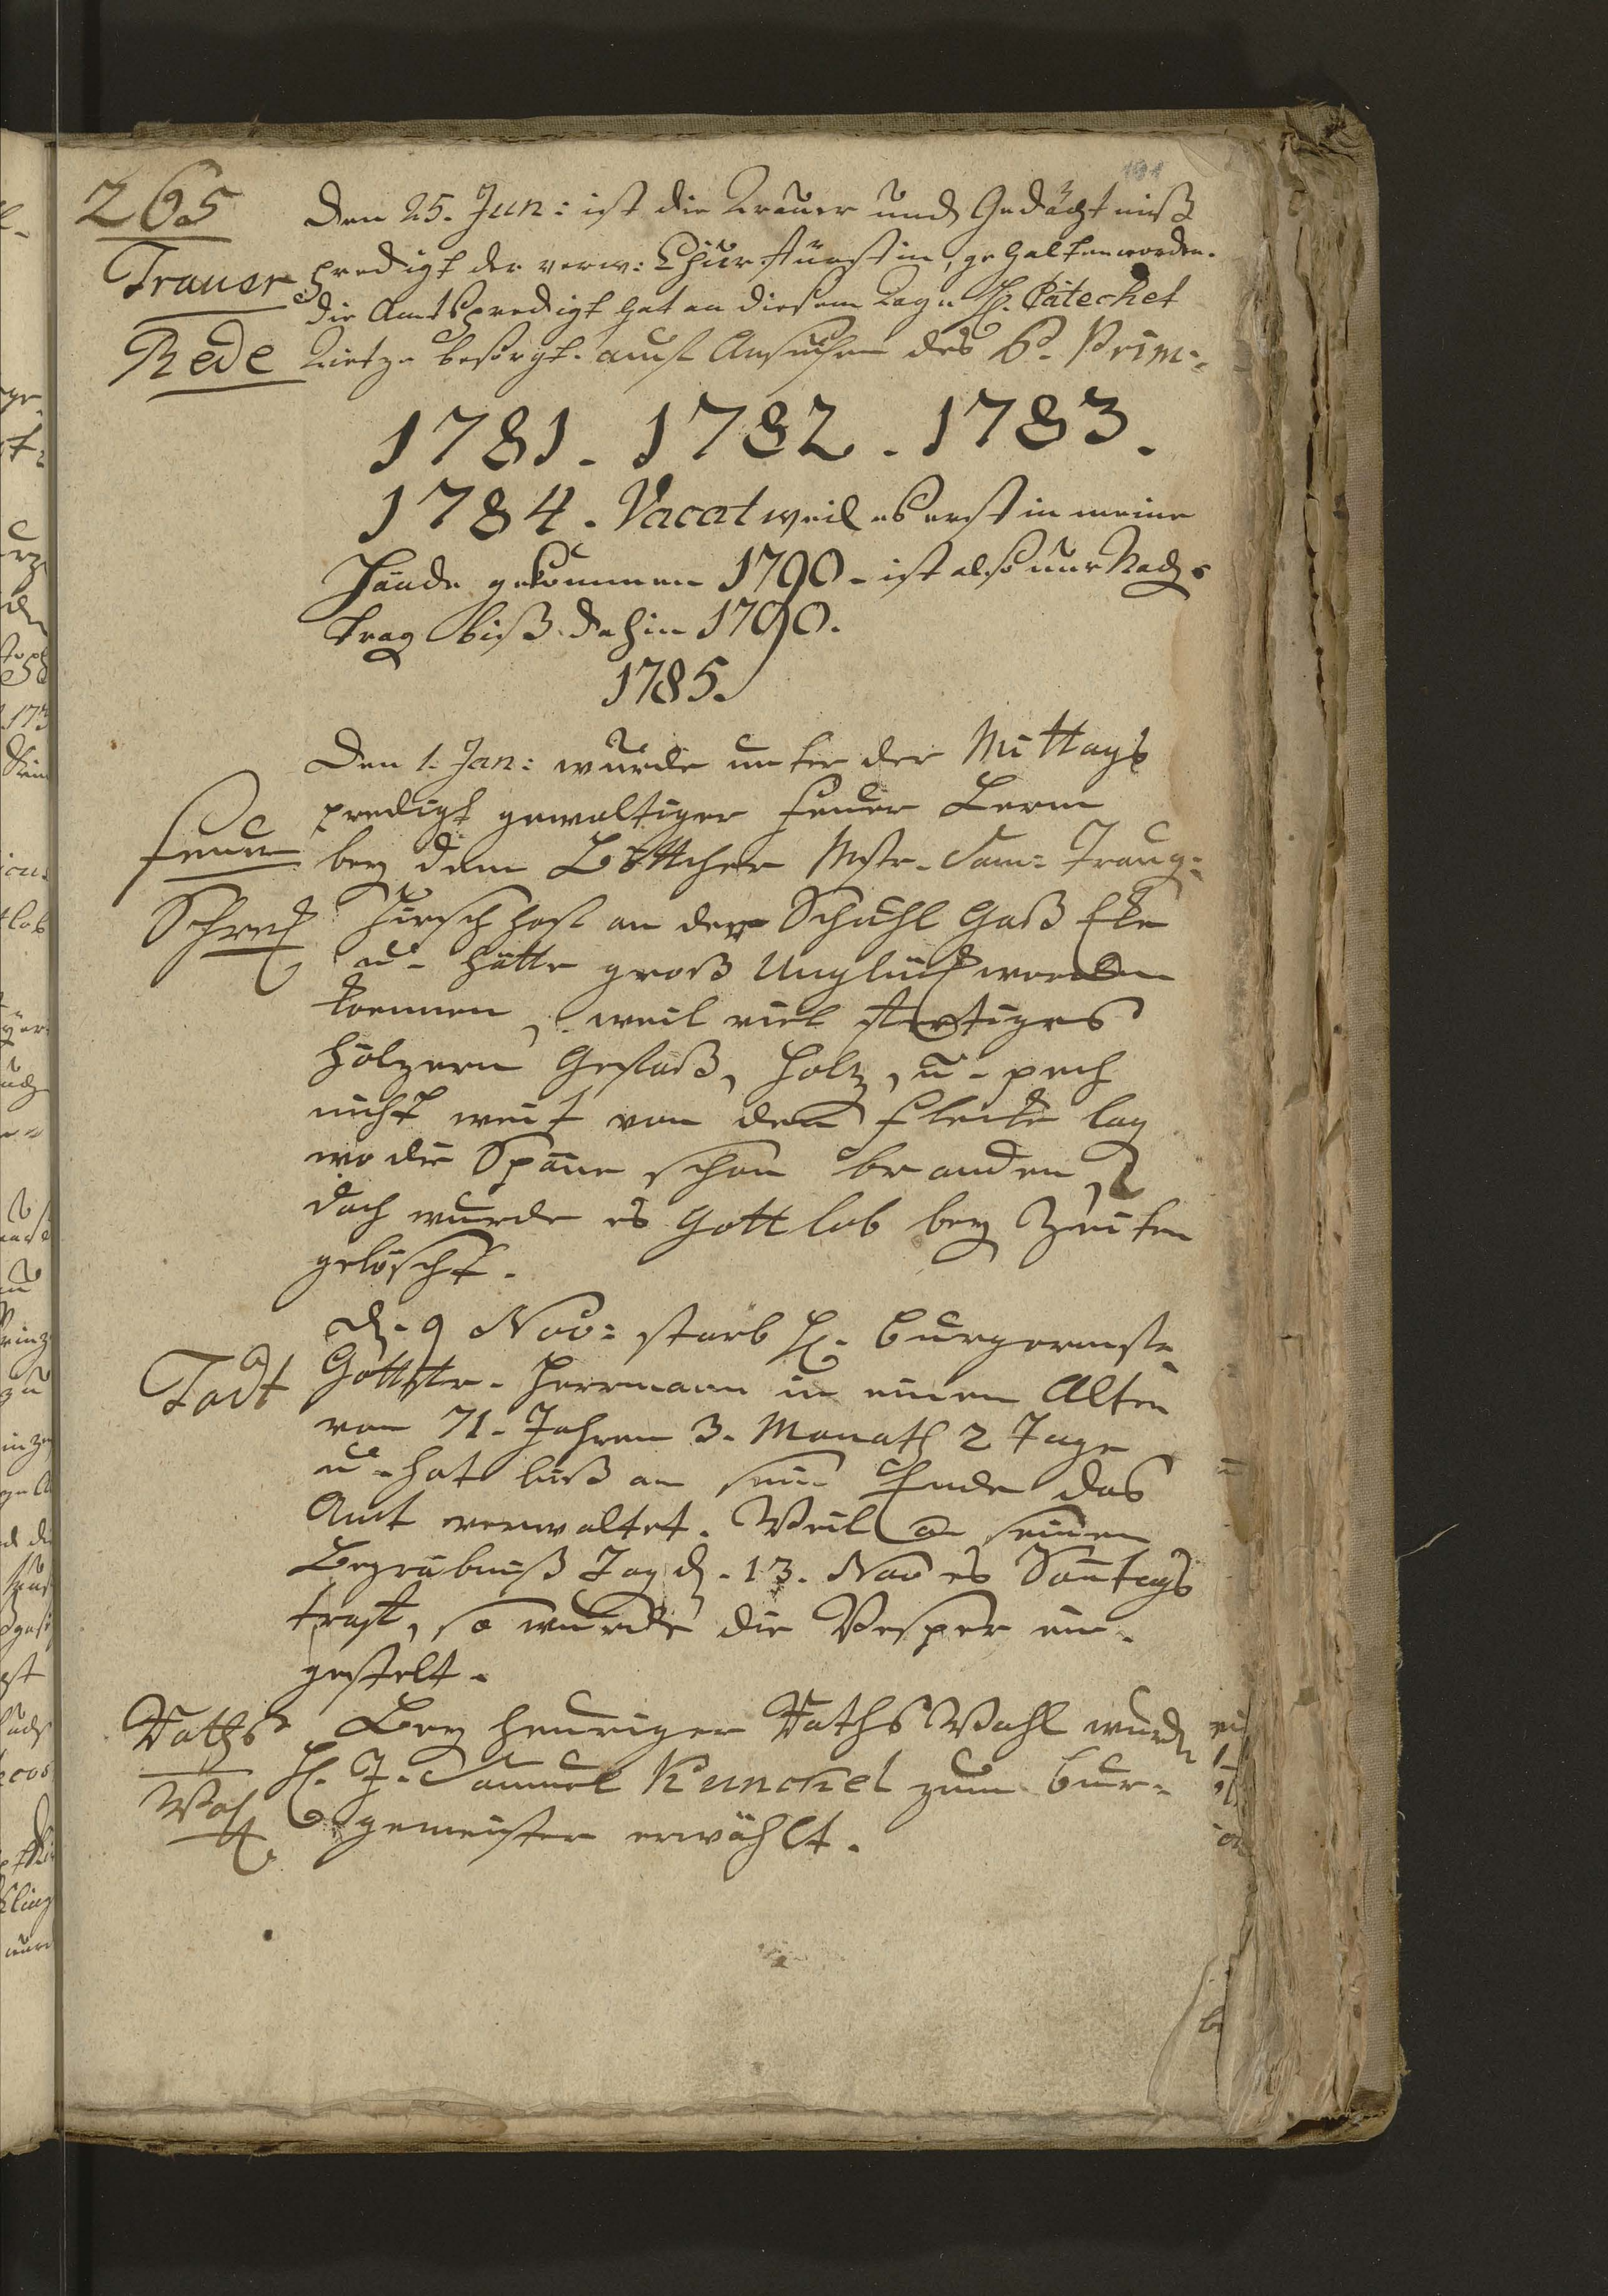 265
Trauer
Rede
Den 25. Jun: ist die Trauer und Gedächtniß
predigt der verw: Churfürstin, gehalten worden.
die Amtspredigt hat an diesem Tage H. Catechet
Tietze besorgt. auf Ansuchen des P. Prim:
1781. 1782. 1783.
1784. Vacat weil es erst in meine
Hände gekommen 1790. ist also nur Nach=
trag biß dahin 1790.
1785.
Feuer
Schreck
Den 1. Jan: wurde unter der Mittags
predigt gewaltiger Feuer Lerm
bey dem Böttcher Mstr. Sam: Traug:
an der Schuhl Gaß Eke
u. hätte groß Unglück werden
koennen, weil viel fertiges
hölzern Gefäß, Holz, u. pech
nicht weit von dem Flecke lag
wo die Späne schon branden,
doch wurde es Gott lob bey Zeiten
gelöscht.
Todt
d. 9 Nov: starb H. Burgermstr
Herrmann in einem Alter
von 71. Jahren 3. Monath 2 Tage
u. hat biß an sein Ende das
Amt verwaltet. Weil an seinen
Begräbniß Tag d. 13. Nov es Sontags
traf, so wurde die Vesper ein=
gestelt.
Raths
Wahl
Bey heuriger Raths Wahl wurde
H. J. Samuel Kunckel zum Bur=
gemeister erwählt.